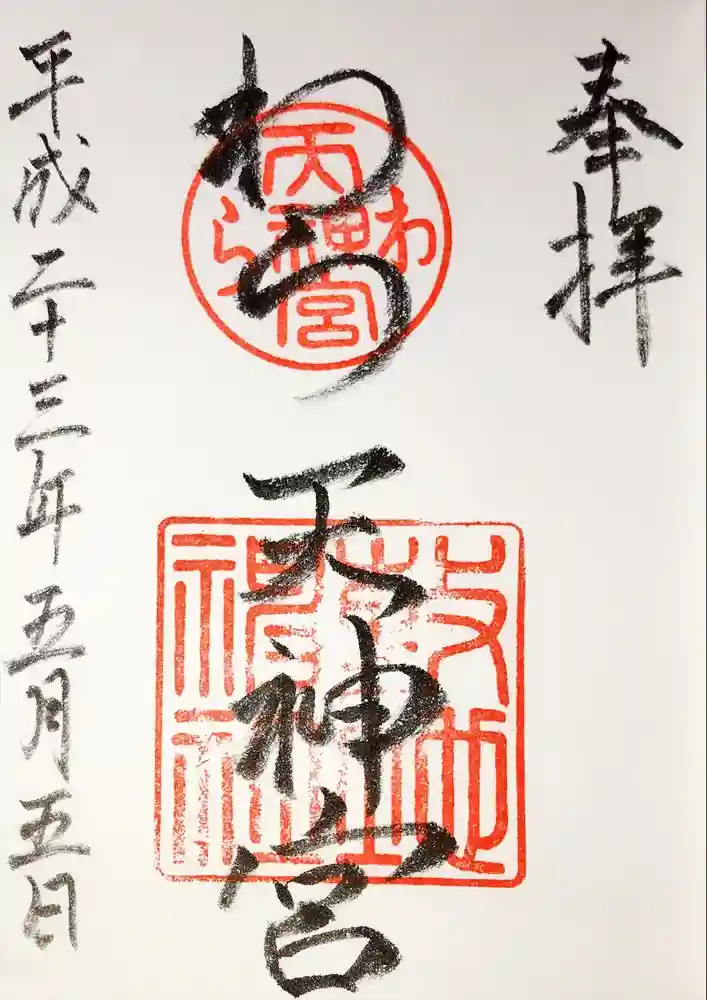 奉拝
わら天神宮
平成二十三年五月五日
わら
天神宮
敷地
神社